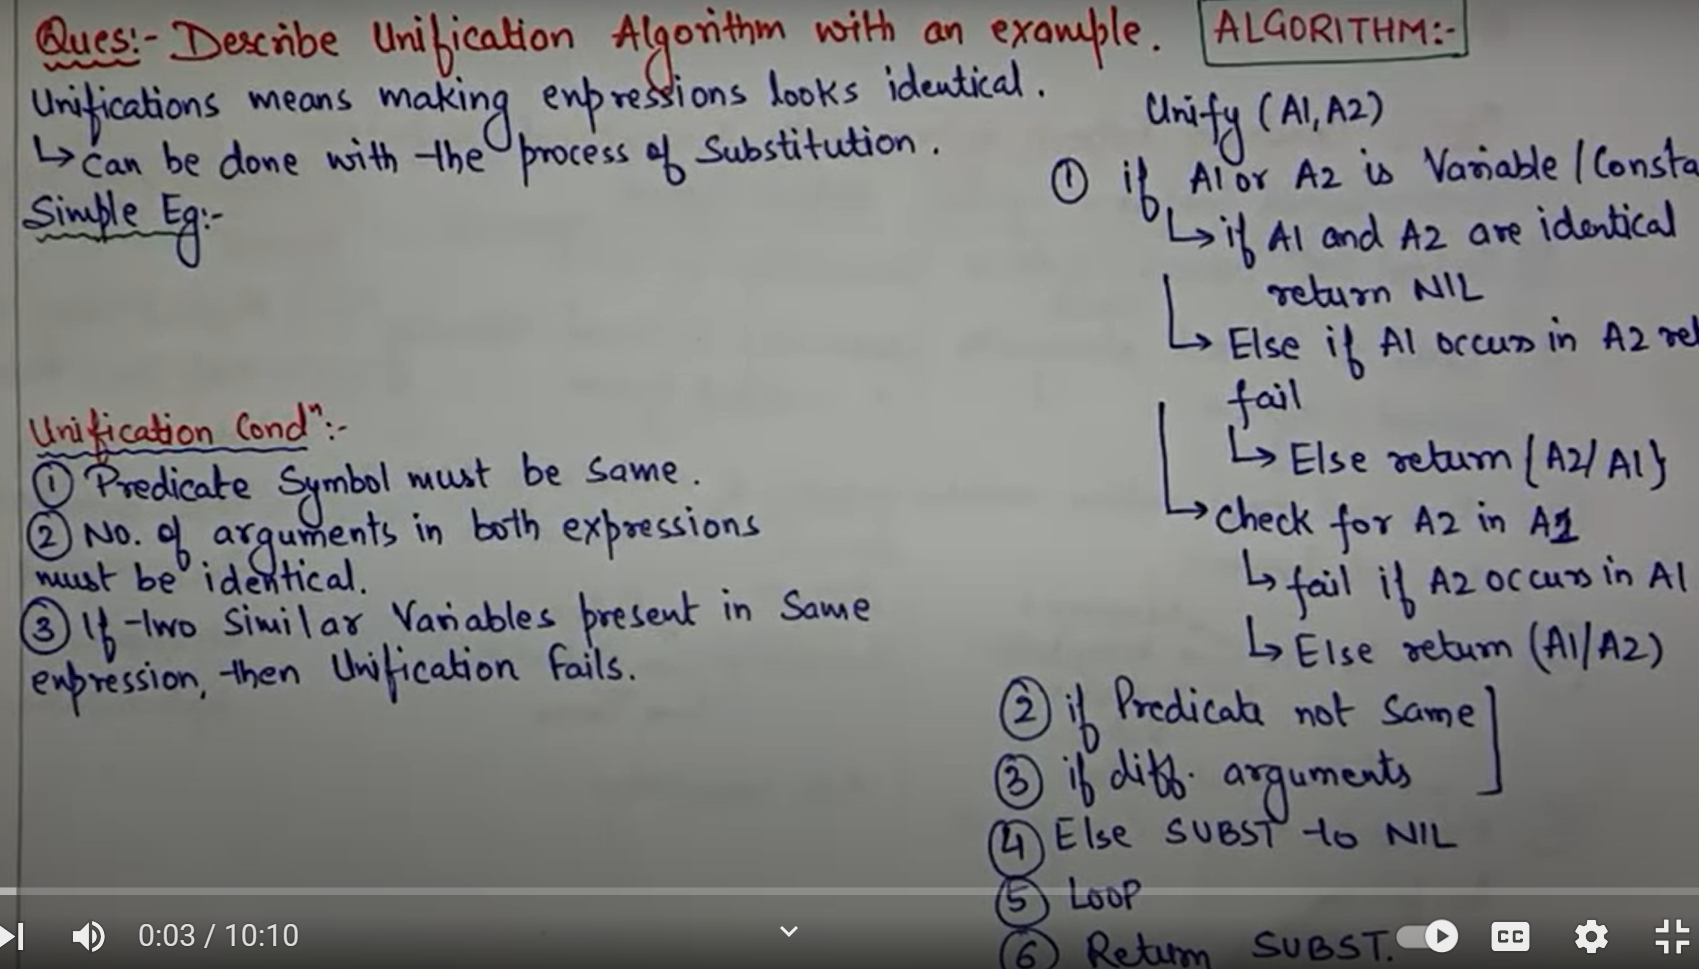 Ques:- Describe Unification Algorithm with an example.
Unifications means making expressions looks identical.
↳ Can be done with the process of Substitution.
Simple Eg:-
Unification Condⁿ:-
① Predicate Symbol must be same.
② No. of arguments in both expressions
must be identical.
③ If two Similar Variables present in Same
expression, then Unification Fails.
ALGORITHM:-
Unify (A1, A2)
① if A1 or A2 is Variable / Consta
↳ if A1 and A2 are identical
return NIL
↳ Else if A1 occurs in A2 ret
fail
↳ Else return {A2/A1}
↳ Check for A2 in A1
↳ fail if A2 occurs in A1
↳ Else return (A1/A2)
② if Predicate not Same
③ if diff. arguments
④ Else SUBST to NIL
⑤ LOOP
⑥ Return SUBST.
0:03 / 10:10
CC